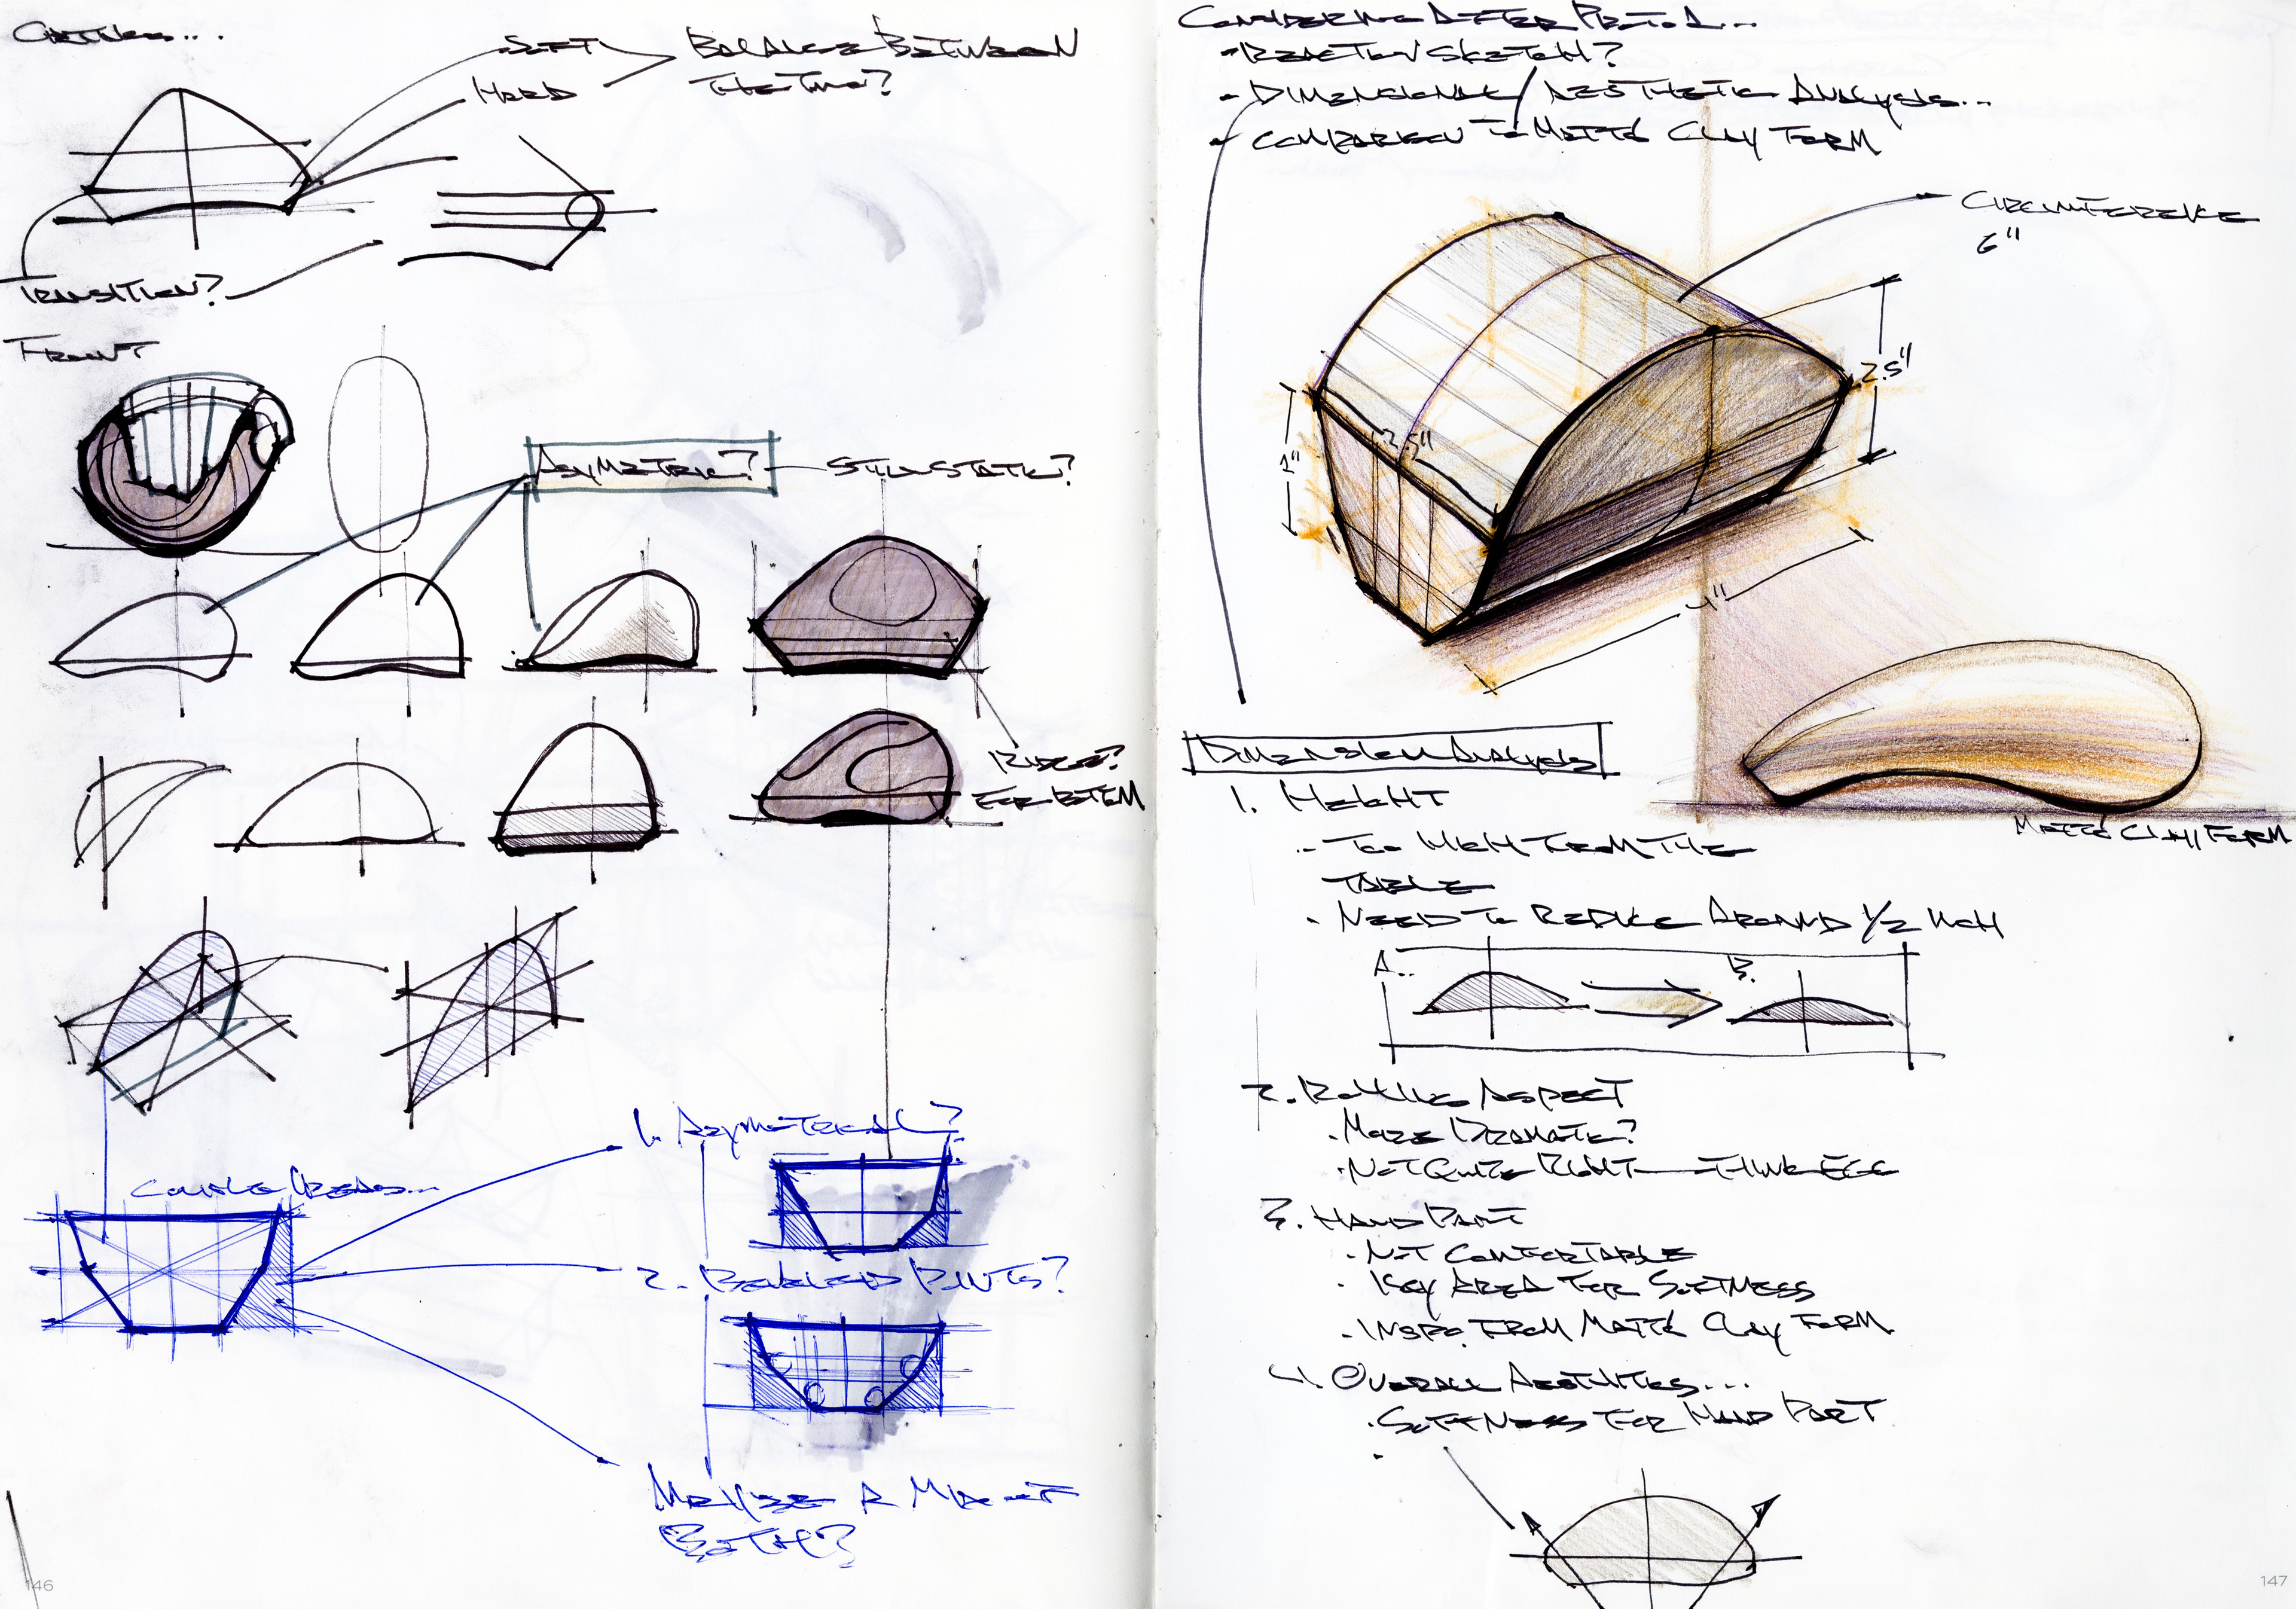 SOFT
HARD
BALANCE BETWEEN
THE TWO?
TRANSITION?
FRONT
ASYMETRIC?
STILL STATIC?
RIDGE?
FOR BOTTOM
COUPLE IDEAS...
1. ASYMETRICAL?
2. BEVELED POINTS?
MAYBE A MIX OF
BOTH?
146
CONSIDERING AFTER PROTO 1...
- REACTION SKETCH?
- DIMENSIONAL/AESTHETIC ANALYSIS...
- COMPARISON TO MATTÉ CLAY FORM
CIRCUMFERENCE
6"
2.5"
2.5"
1"
4"
MATTÉ CLAY FORM
DIMENSION ANALYSIS
1. HEIGHT
- TOO HIGH FROM THE
TABLE
- NEED TO REDUCE AROUND 1/2 INCH
A.. B.
2. ROLLING ASPECT
- MORE DRAMATIC?
- NOT QUITE RIGHT — THINK EGG
3. HAND PART
- NOT COMFORTABLE
- KEY AREA FOR SOFTNESS
- INSPO FROM MATTÉ CLAY FORM
4. OVERALL AESTHETICS...
- SOFTNESS FOR HAND PART
147